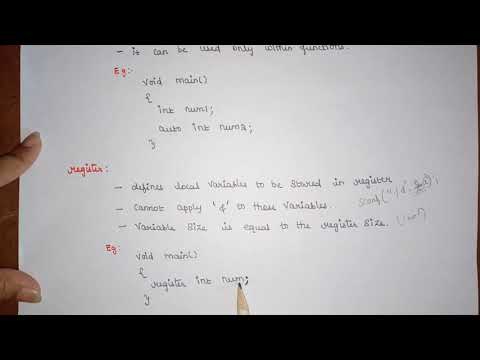 - it can be used only within functions.
Eg:-
void main()
{
int num1;
auto int num2;
}
register:
- defines local variables to be stored in register
- Cannot apply '&' to these variables. scanf("%d",
- Variable size is equal to the register size.
Eg:
void main()
{
register int num;
}